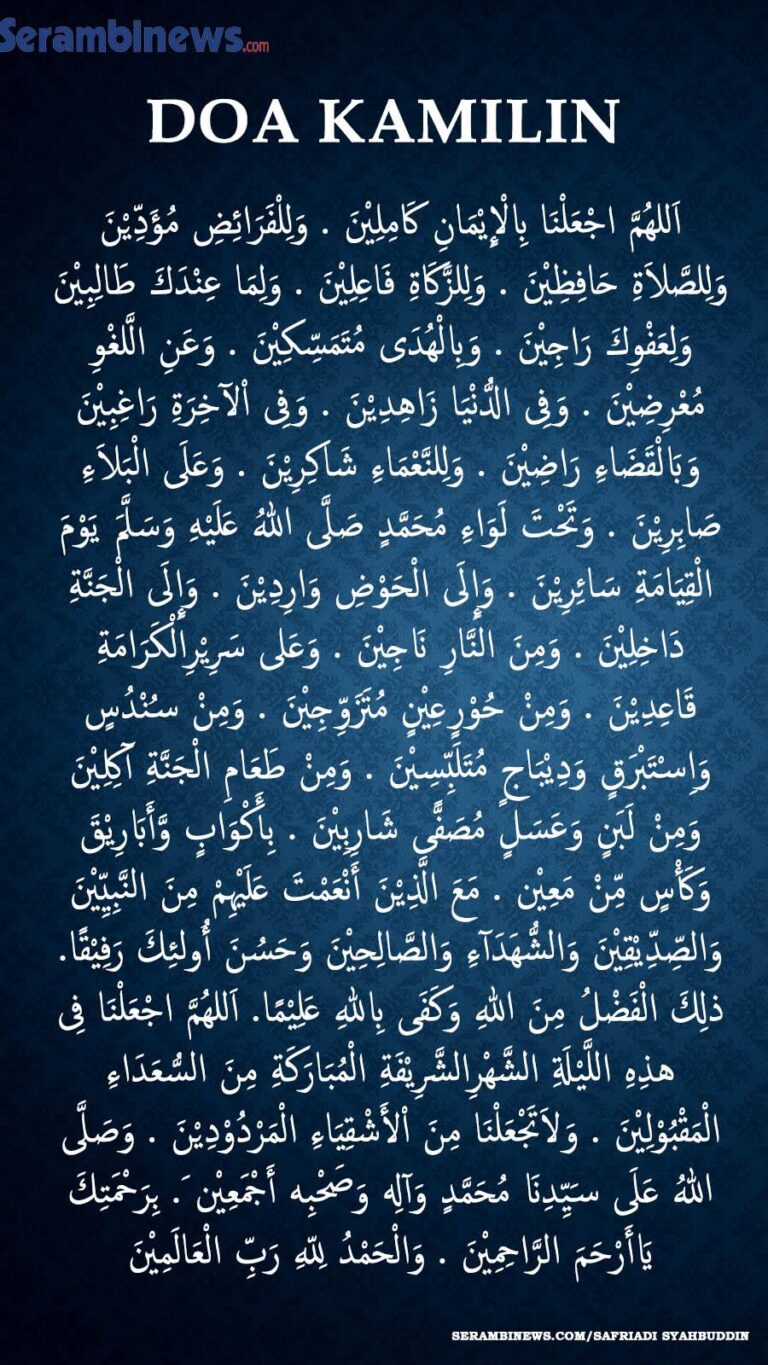 Serambinews.com
DOA KAMILIN
اَللهُمَّ اجْعَلْنَا بِالْإِيْمَانِ كَامِلِيْنَ . وَلِلْفَرَائِضِ مُؤَدِّيْنَ
وَلِلصَّلاَةِ حَافِظِيْنَ . وَلِلزَّكَاةِ فَاعِلِيْنَ . وَلِمَا عِنْدَكَ طَالِبِيْنَ
وَلِعَفْوِكَ رَاجِيْنَ . وَبِالْهُدَى مُتَمَسِّكِيْنَ . وَعَنِ الَّلغْوِ
مُعْرِضِيْنَ . وَفِى الدُّنْيَا زَاهِدِيْنَ . وَفِى اْلآخِرَةِ رَاغِبِيْنَ
وَبَالْقَضَاءِ رَاضِيْنَ . وَلِلنَّعْمَاءِ شَاكِرِيْنَ . وَعَلَى الْبَلاَءِ
صَابِرِيْنَ . وَتَحْتَ لَوَاءِ مُحَمَّدٍ صَلَّى اللهُ عَلَيْهِ وَسَلَّمَ يَوْمَ
الْقِيَامَةِ سَائِرِيْنَ . وَإِلَى الْحَوْضِ وَارِدِيْنَ . وَإِلَى الْجَنَّةِ
دَاخِلِيْنَ . وَمِنَ النَّارِ نَاجِيْنَ . وَعَلى سَرِيْرِالْكَرَامَةِ
قَاعِدِيْنَ . وَمِنْ حُوْرٍعِيْنٍ مُتَزَوِّجِيْنَ . وَمِنْ سُنْدُسٍ
وَاِسْتَبْرَقٍ وَدِيْبَاجٍ مُتَلَبِّسِيْنَ . وَمِنْ طَعَامِ الْجَنَّةِ آكِلِيْنَ
وَمِنْ لَبَنٍ وَعَسَلٍ مُصَفًّى شَارِبِيْنَ . بِأَكْوَابٍ وَّأَبَارِيْقَ
وَكَأْسٍ مِّنْ مَعِيْن . مَعَ الَّذِيْنَ أَنْعَمْتَ عَلَيْهِمْ مِنَ النَّبِيِّيْنَ
وَالصِّدِّيْقِيْنَ وَالشُّهَدَآءِ وَالصَّالِحِيْنَ وَحَسُنَ أُولئِكَ رَفِيْقًا.
ذلِكَ الْفَضْلُ مِنَ اللهِ وَكَفَى بِاللهِ عَلِيْمًا. اَللهُمَّ اجْعَلْنَا فِى
هذِهِ اللَّيْلَةِ الشَّهْرِالشَّرِيْفَةِ الْمُبَارَكَةِ مِنَ السُّعَدَاءِ
الْمَقْبُوْلِيْنَ . وَلاَتَجْعَلْنَا مِنَ اْلأَشْقِيَاءِ الْمَرْدُوْدِيْنَ . وَصَلَّى
اللهُ عَلَى سَيِّدِنَا مُحَمَّدٍ وَآلِه وَصَحْبِه أَجْمَعِيْن َ. بِرَحْمَتِكَ
يَاأَرْحَمَ الرَّاحِمِيْنَ . وَالْحَمْدُ لِلّهِ رَبِّ الْعَالَمِيْنَ
SERAMBINEWS.COM/SAFRIADI SYAHBUDDIN